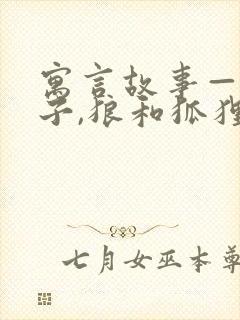 寓言故事—
子,狼和狐狸
七月女巫本尊